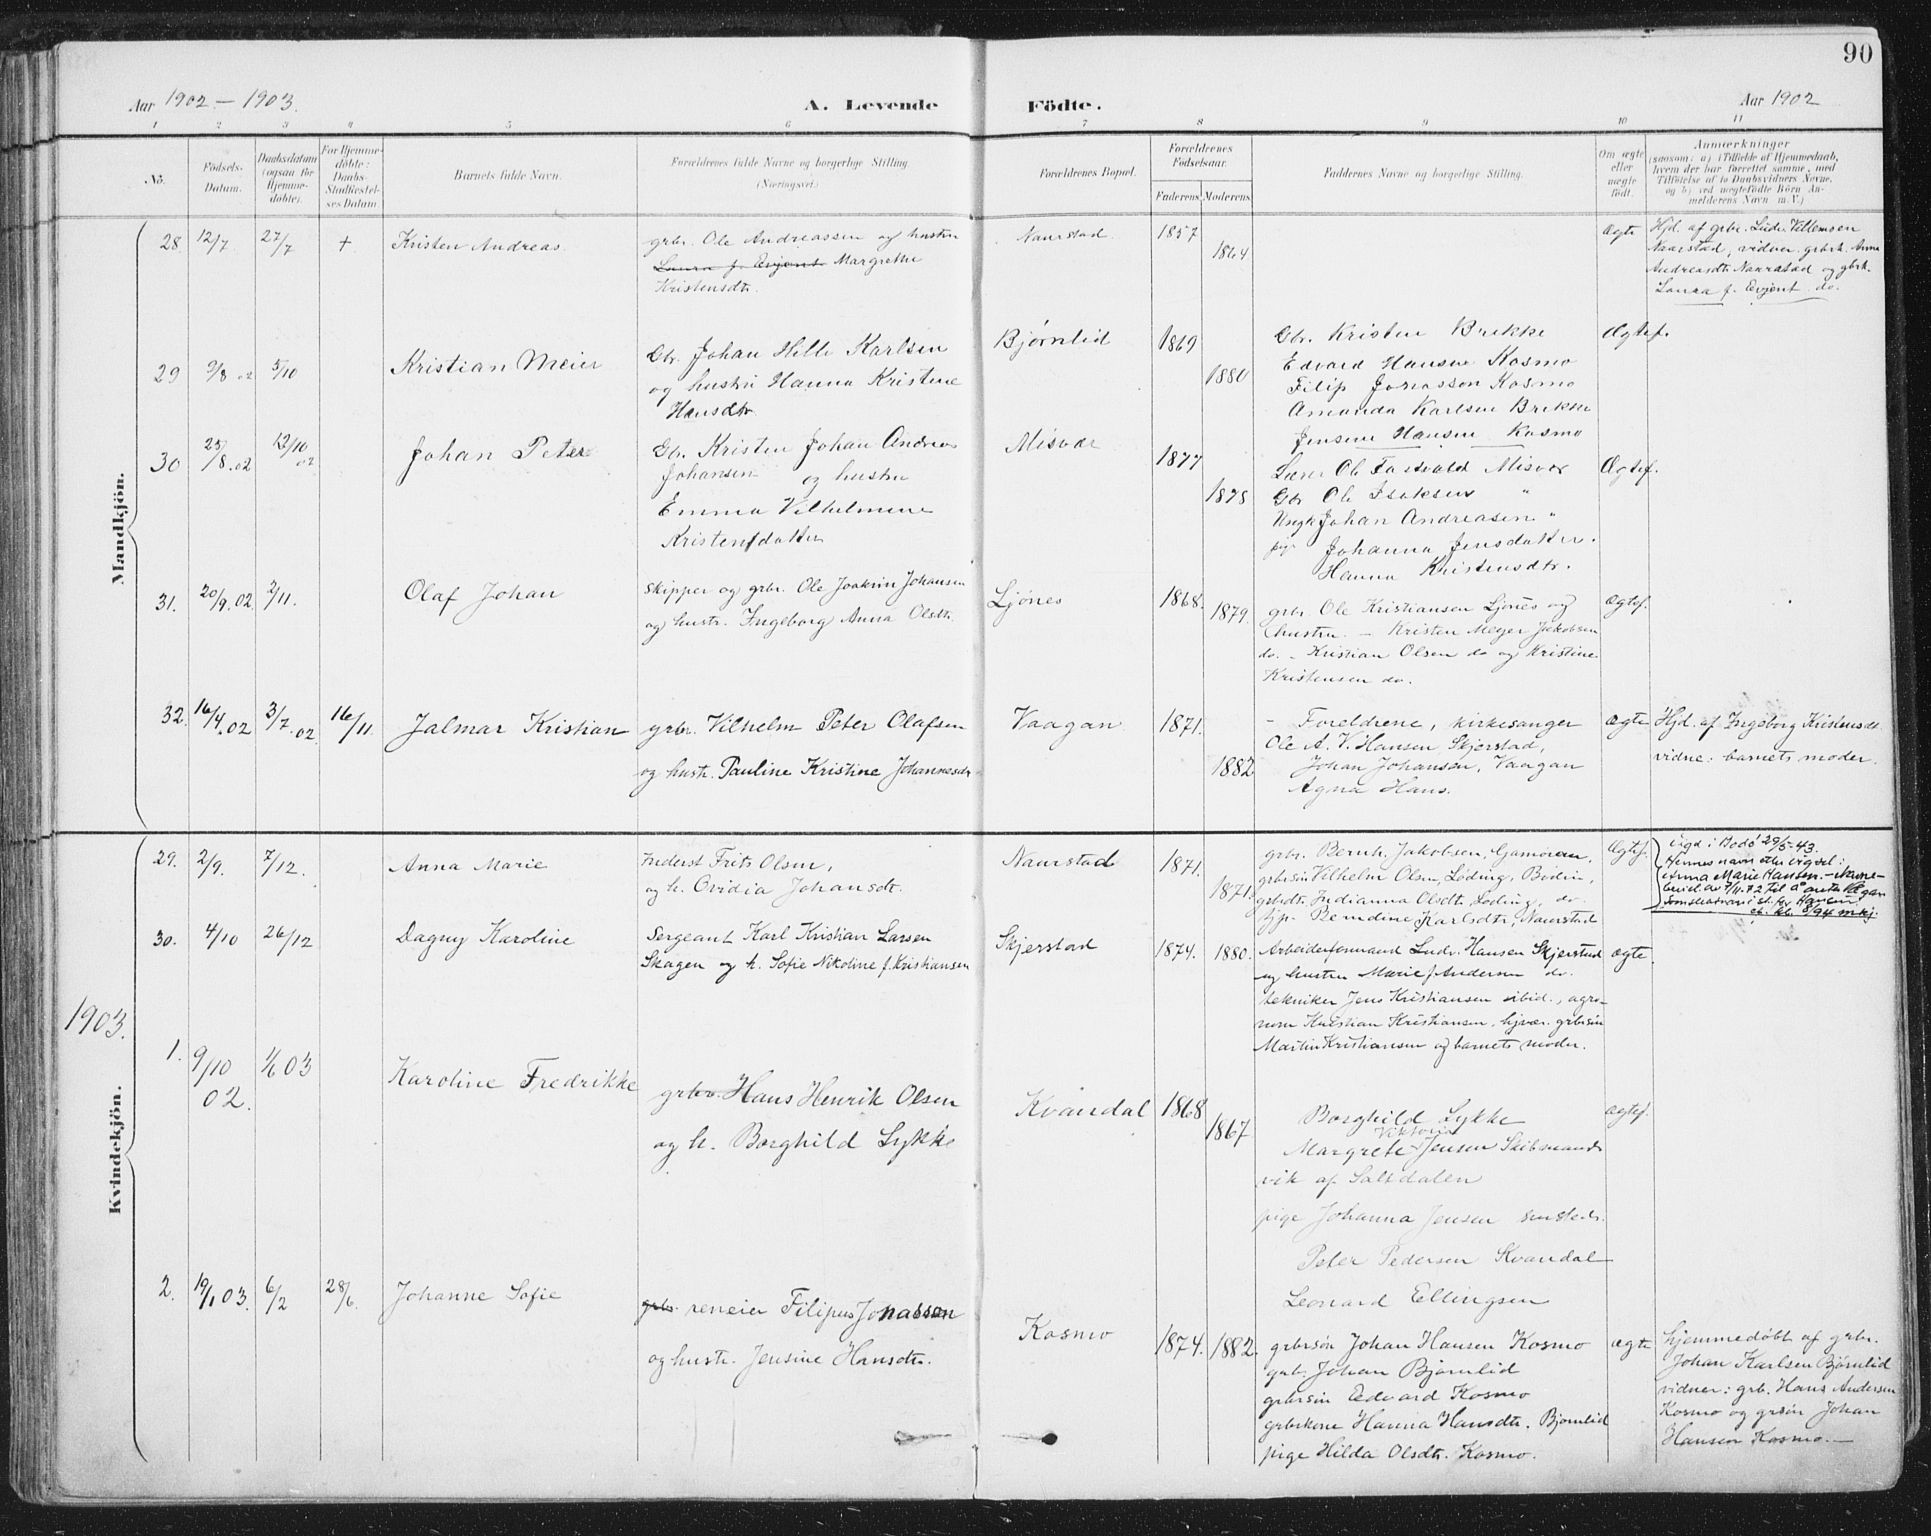 90
Aar 1902 - 1903.
A. Levende Födte.
Aar 1902
1 2 3 4 5 6 7 8 9 10 11
No.
Födsels-Datum.
Daabsdatum (ogsaa for Hjemmedöbte).
For Hjemmedöbte: Daabs-Stadfæstelses Datum
Barnets fulde Navn.
Forældrenes fulde Navne og borgerlige Stilling. (Næringsvei.)
Forældrenes Bopæl.
Forældrenes Födselsaar.
Faderens Moderens
Faddernes Navne og borgerlige Stilling.
Om ægte eller uægte født.
Anmærkninger
(saasom: a) i Tilfælde af Hjemmedaab,
hvem der har forrettet samme, med
Tilföielse af to Daabsvidners Navne,
og b) ved uægtefödte Börn An-
melderens Navn m. V.)
Mandkjön.
28 12/7. 27/7 + Kristen Andreas.
grbr. Ole Andreassen og hustru
Laura f. Evjent Margrethe
Kristensdtr.
Naurstad. 1857 1864 Ægte
Hjd. af grbr. Ludv. Villemsen
Naurstad, vidner grbrk. Anna
Andreasdtr. Naurstad og gbrk.
Laura f. Evjent do.
29 9/8 02 5/10 Kristian Meier
Gbr. Johan Hille Karlsen
og hustru Hanna Kristine
Hansdtr
Bjørnlid 1869 1880
Gbr. Kristen Brekke
Edvard Hansen Kosmo
Filip Jonasson Kosmo
Amanda Karlsen Brekke
Jensine Hansen Kosmo
Ægtef.
30 25/8.02 12/10 02 Johan Peter
Gbr. Kristen Johan Andreas
Johansen og hustru
Emma Vilhelmine
Kristensdatter
Misvær 1877 1878
Lærer Ole Tostvold Misvær
Gbr Ole Isaksen "
Ungk Johan Andreasen "
pige Johanna Jensdatter.
Hanna Kristensdtr.
Ægtef.
31. 20/9.02. 2/11. Olaf Johan
Skipper og grbr. Ole Joakim Johansen
og hustr. Ingeborg Anna Olsdtr.
Ljönes 1868. 1879.
grbr. Ole Kristiansen Ljönes og
hustru. - Kristen Meyer Jakobsen
do. - Kristian Olsen do og Kristine
Kristensen do.
Ægtef.
32. 16/4.02 3/7.02 16/11. Jalmar Kristian
grbr. Vilhelm Peter Olafsen
og hustr. Pauline Kristine Johannesdr
Vaagan 1871. 1882
- Foreldrene, kirkesanger
Ole A. V. Hansen, Skjerstad,
Johan Johansen, Vaagan
Agna Hans.
Ægte
Hjd. af Ingeborg Kristensdt.
vidne: barnets moder.
Kvindekjön.
29. 2/9. 7/12. Anna Marie
Inderst Frits Olsen,
og h. Ovidia Johansdtr.
Naurstad 1871. 1871.
grbr. Bernh. Jakobsen,
grbrsön Vilhelm Olsen, Löding, Bodin,
Indianna Olsdtr. Löding, do.
Berndine Karlsdtr. Naurstad
Ægtef.
vigd i Bodö 29/5-43.
Hennes navn etter vigsel:
Anna Marie Hansen. -
30. 4/10 26/12 Dagny Karoline
Sergeant Karl Kristian Larsen
Skagen og h. Sofie Nikoline f. Kristiansen
Skjerstad 1874. 1880.
Arbeiderformand Ludv. Hansen Skjerstad
og hustru Marie f. Andersen do.
tekniker Jens Kristiansen ibid., agro-
nom Kristian Kristiansen, grbrsön
Martin Kristiansen og barnets moder.
ægte.
1903.
1. 9/10 02. 1/1 03 Karoline Fredrikke
grbr. Hans Henrik Olsen
og h. Borghild Lykke
Kvandal 1868 1867
Borghild Lykke
Viktoria
Margrete Jensen Skibmands
vik af Saltdalen
pige Johanna Jensen
Peter Pedersen Kvandal
Leonard Ellingsen
ægtef.
2. 19/1 03. 6/2 28/6. Johanne Sofie
grbr. reneier Filipus Jonassen
og hustr. Jensine Hansdtr.
Kosmo 1874. 1882.
grbrsön Johan Hansen Kosmo
grbr. Johan Bjørnlid
grbrsön Edvard Kosmo
grbrkone Hanna Hansdtr. Bjørnlid
pige Hilda Olsdtr. Kosmo.
ægte
hjemmedöbt af grbr.
Johan Karlsen Bjørnlid
vidner: grb. Hans Andersen
Kosmo og grsön Johan
Hansen Kosmo. -